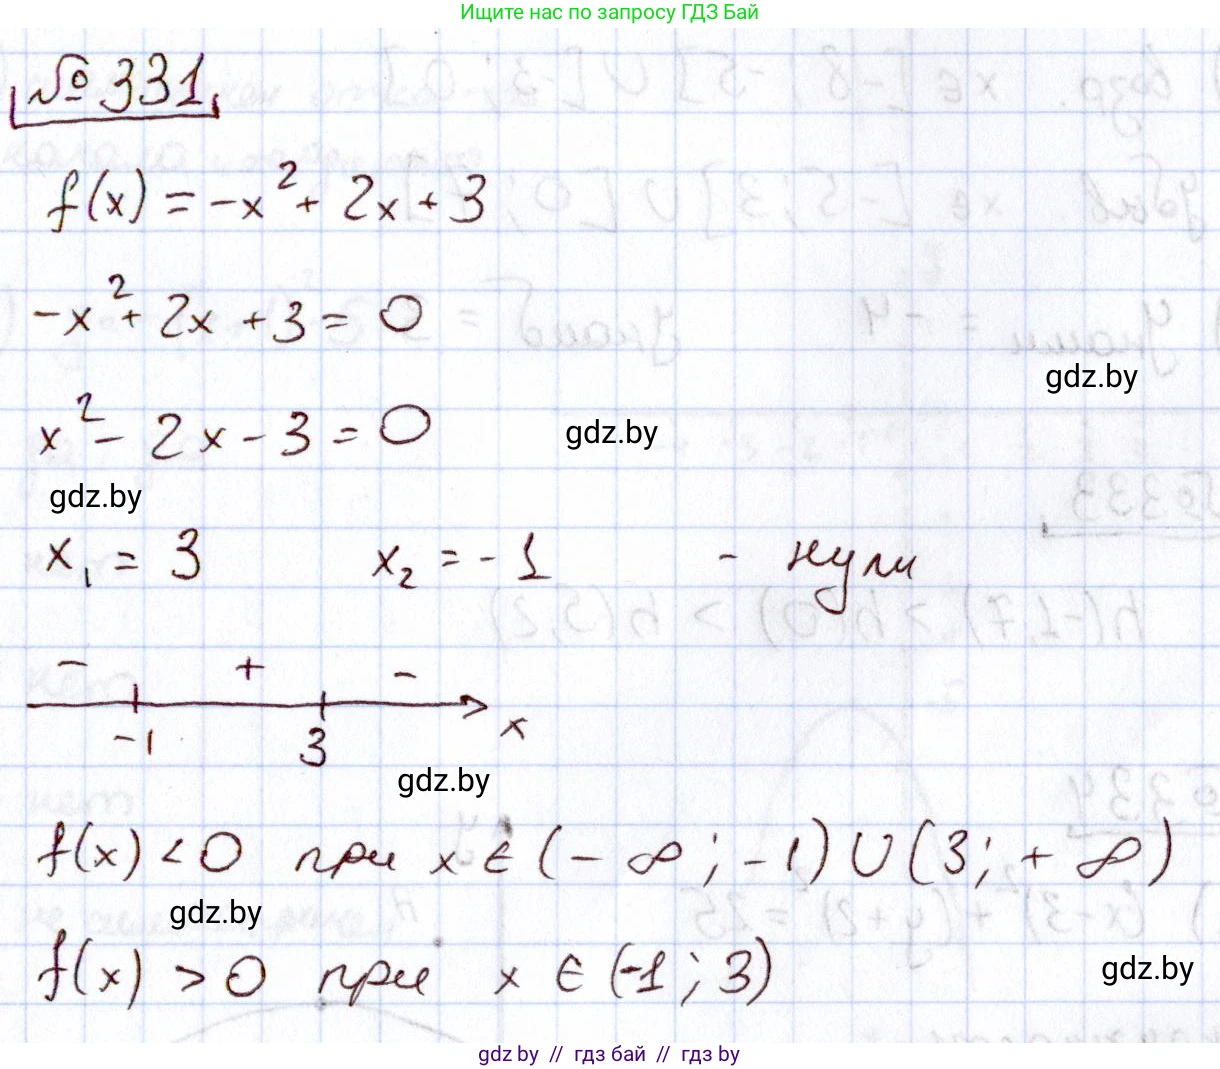 Ищите нас по запросу ГДЗ Бай
№331
f(x) = -x² + 2x + 3
-x² + 2x + 3 = 0
gdz.by
x² - 2x - 3 = 0
gdz.by
gdz.by
x₁ = 3 x₂ = -1 - нули
- + -
-1 3 x
gdz.by
f(x) < 0 при x ∈ (-∞; -1) ∪ (3; +∞)
gdz.by
f(x) > 0 при x ∈ (-1; 3)
gdz.by
gdz by // гдз бай // гдз by